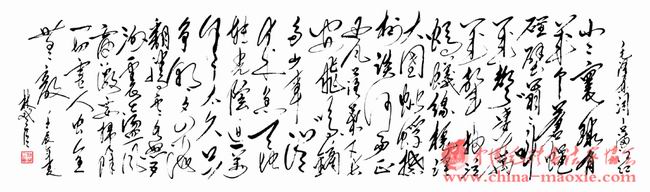 毛泽东词满江红
小小寰球有
几个苍蝇
碰壁嗡嗡叫
几声凄厉
几声抽泣
蚂蚁缘槐夸
大国蚍蜉撼
树谈何易正
西风落叶下长
安飞鸣镝
多少事从来
急天地
转光阴迫一万
年太久只
争朝夕四海
翻腾云水怒五
洲震荡风
雷激要扫除
一切害人虫全
无敌
http://www.china-maoxie.com